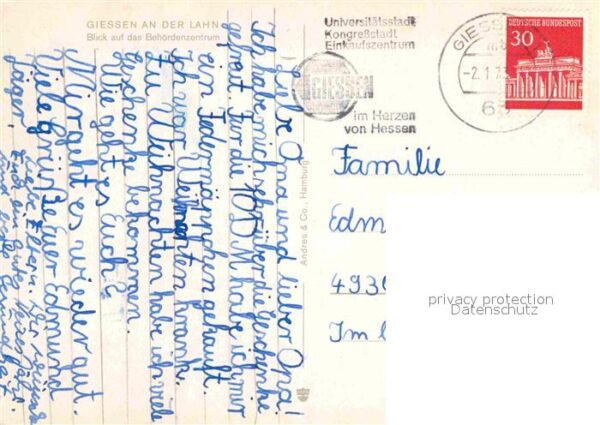 GIESSEN AN DER LAHN
Blick auf das Behördenzentrum
Universitätsstadt
Kongreßstadt
Einkaufszentrum
GIESSEN
im Herzen
von Hessen
GIESS
-2.1.7
63
DEUTSCHE BUNDESPOST
30
Liebe Oma und lieber Opa!
Ich habe mich sehr über die Geschenke
gefreut. Für die 10 DM habe ich mir
ein Federmäppchen gekauft.
Ich war Weihnachten krank.
Zu Weihnachten habe ich viele
Geschenke bekommen.
Wie geht es Euch?
Mir geht es wieder gut.
Viele Grüße Euer Edmund
Liebe Eltern! Wir wünschen
Euch ein gutes neues Jahr
und beste Gesundheit
Andres & Co., Hamburg
Familie
Edm
493
Im
privacy protection
Datenschutz